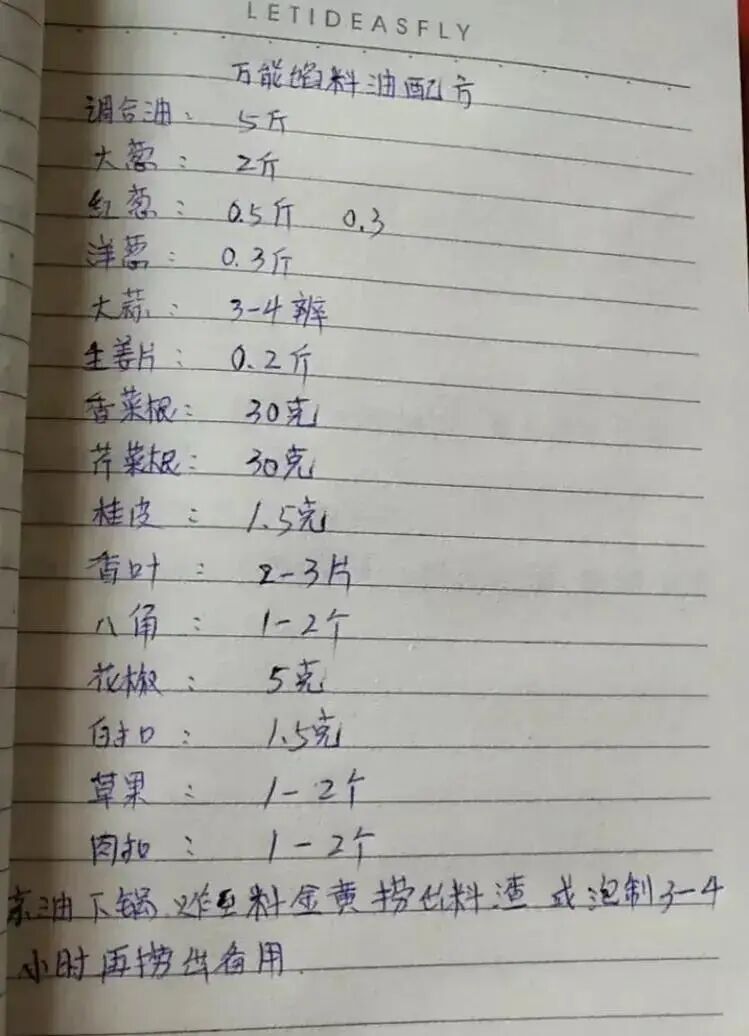 LETIDEASFLY
万能馅料油配方
调合油: 5斤
大葱: 2斤
红葱: 0.5斤 0.3
洋葱: 0.3斤
大蒜: 3-4辨
生姜片: 0.2斤
香菜根: 30克
芹菜根: 30克
桂皮: 1.5克
香叶: 2-3片
八角: 1-2个
花椒: 5克
白扣: 1.5克
草果: 1-2个
肉扣: 1-2个
油下锅炸至料金黄捞出料渣或泡制3-4
小时再捞出备用.